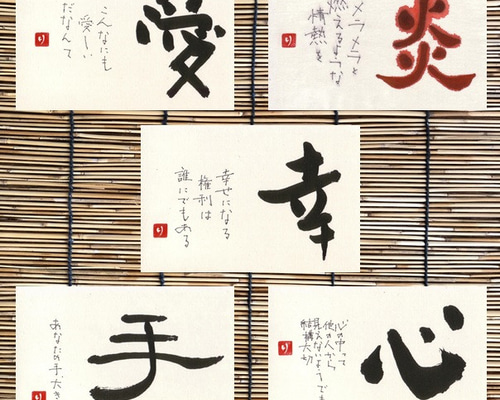 愛
こんなにも
愛しい
だなんて
炎
メラメラと
燃えるような
情熱を
幸
幸せになる
権利は
誰にでもある
手
あなたの手大き
心
心の中って
他の人から
見えないようでも
結構大切